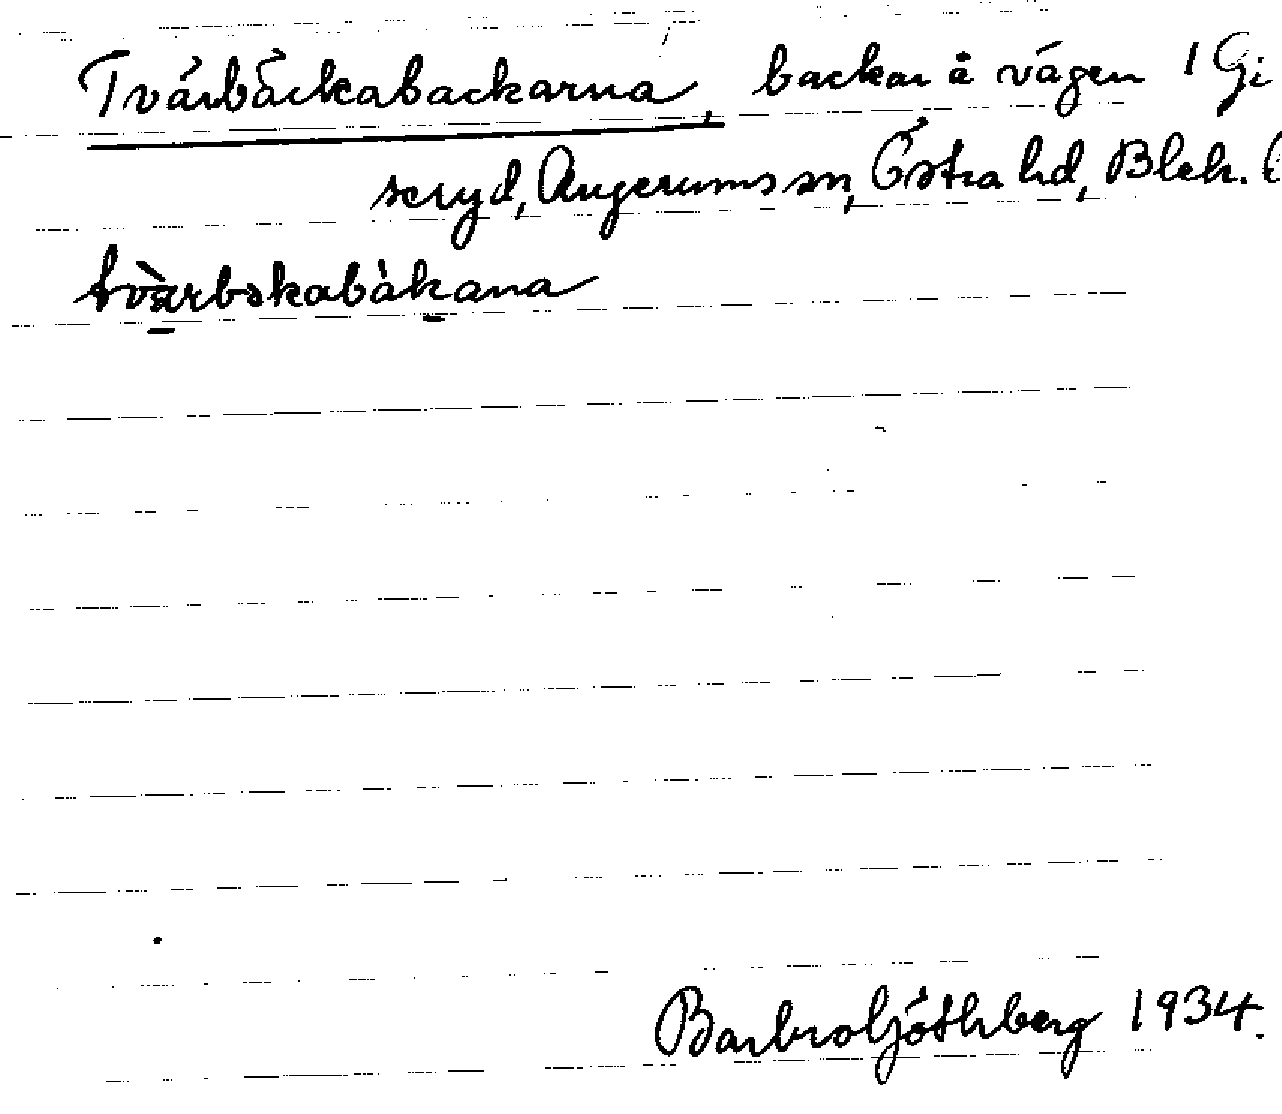 Tvärbäckabackarna, backar å vägen i Gi
seryd, Augerums sn, Östra hd, Blek.
tvärbəkabàkana
Barbro Göthberg 1934.